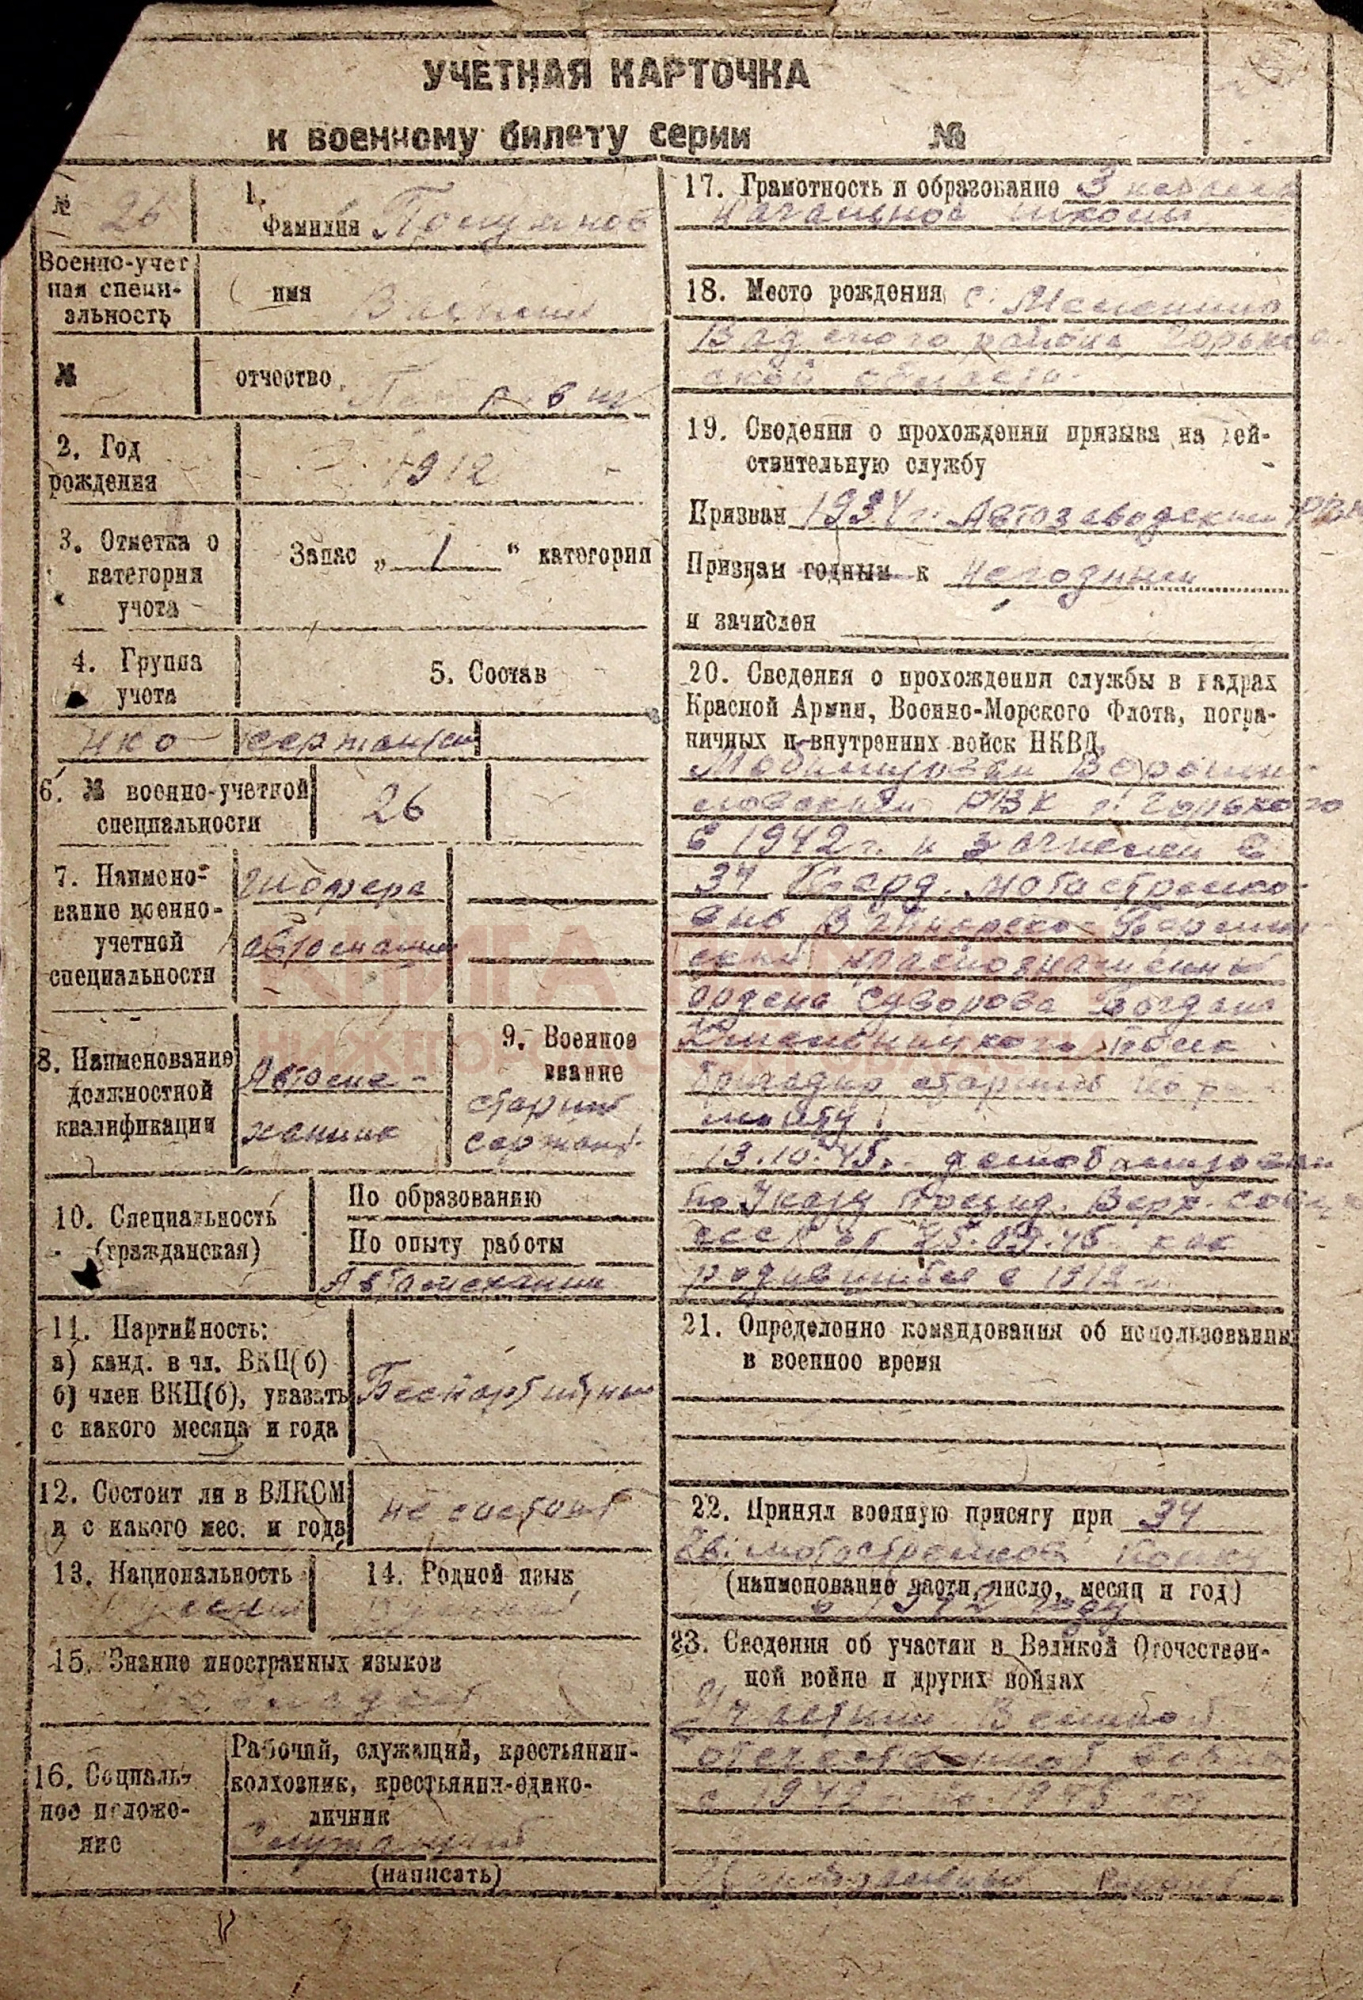 УЧЕТНАЯ КАРТОЧКА
к военному билету серии №
№ 26
1. Фамилия
Военно-учетная специальность
имя
№
отчество
2. Год рождения
1912
3. Отметка о категории учета
Запас „ 1 “ категории
4. Группа учета
5. Состав
нко
сержантск
6. № военно-учетной специальности
26
7. Наименование военно-учетной специальности
шофера
автомашин
8. Наименование должностной квалификации
Автоме-
ханик
9. Военное звание
старший
сержант
10. Специальность (гражданская)
По образованию
По опыту работы
Автомеханик
11. Партийность:
а) канд. в чл. ВКП(б)
б) член ВКП(б), указать
с какого месяца и года
Беспартийный
12. Состоит ли в ВЛКСМ
и с какого мес. и года
не состоит
13. Национальность
русский
14. Родной язык
русский
15. Знание иностранных языков
не владеет
16. Социальное положение
Рабочий, служащий, крестьянин-
колхозник, крестьянин-едино-
личник
Служащий
(написать)
17. Грамотность и образование 3 класса
начальной школы
18. Место рождения с.
Вадского района Горьков-
ской области
19. Сведения о прохождении призыва на дей-
ствительную службу
Призван 1934 г. Автозаводским РВК
Признан годным к негодным
и зачислен
20. Сведения о прохождении службы в кадрах
Красной Армии, Военно-Морского Флота, погра-
ничных и внутренних войск НКВД
Мобилизован Вороши-
ловским РВК г. Горького
в 1942 г. и зачислен в
34 Гвард. мотострелко-
вую Берлин-
ский Краснознаменный
ордена Суворова Богдана
Хмельницкого
бригадир
13.10.45г. демобилизован
по Указу Презид. Верх. Совета
СССР от 25.09.45 как
родившийся в 1912 г.
21. Определение командования об использовании
в военное время
22. Принял военную присягу при 34
гв. мотострелков полку
(наименование части, число, месяц и год)
в 1942 году
23. Сведения об участии в Великой Отечествен-
ной войне и других войнах
Участник Великой
отечественной войны
с 1942 г. по 1945 год
КНИГА ПАМЯТИ
НИЖЕГОРОДСКОЙ ОБЛАСТИ